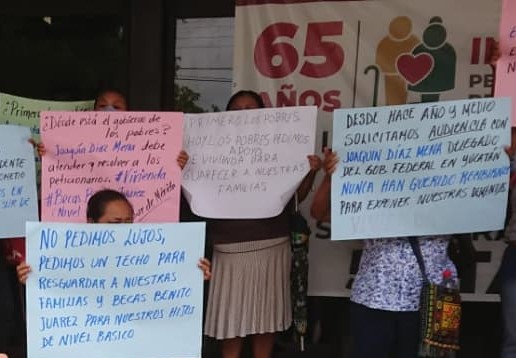 65
AÑOS
¿Primero
¿Dónde está el gobierno de
los pobres?
Joaquín Díaz Mena debe
atender y resolver a los
peticionarios. #Vivienda
#Becas Juárez
(Nivel
PRIMERO LOS POBRES
HOY LOS POBRES PEDIMOS
APOYO
DE VIVIENDA PARA
GUARECER A NUESTRAS
FAMILIAS
DESDE HACE AÑO Y MEDIO
SOLICITAMOS AUDIENCIA CON
JOAQUÍN DÍAZ MENA DELEGADO
DEL GOB. FEDERAL EN YUCATÁN
NUNCA HAN QUERIDO RECIBIRNOS
PARA EXPONER NUESTRAS DEMANDAS
EN
SUR DE
NO PEDIMOS LUJOS,
PEDIMOS UN TECHO PARA
RESGUARDAR A NUESTRAS
FAMILIAS Y BECAS BENITO
JUAREZ PARA NUESTROS HIJOS
DE NIVEL BASICO